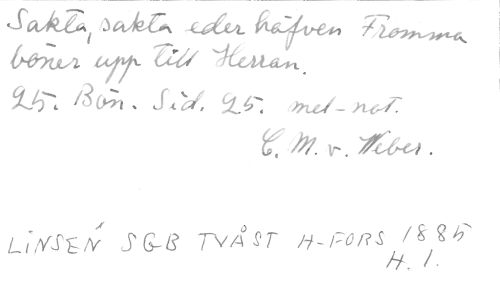 Sakta, sakta eder häfven Fromma
böner upp till Herran.
25. Bön. Sid. 25. mel-not.
C. M. v. Weber.
LINSÉN SGB TVÅST H-FORS 1885
H. 1.